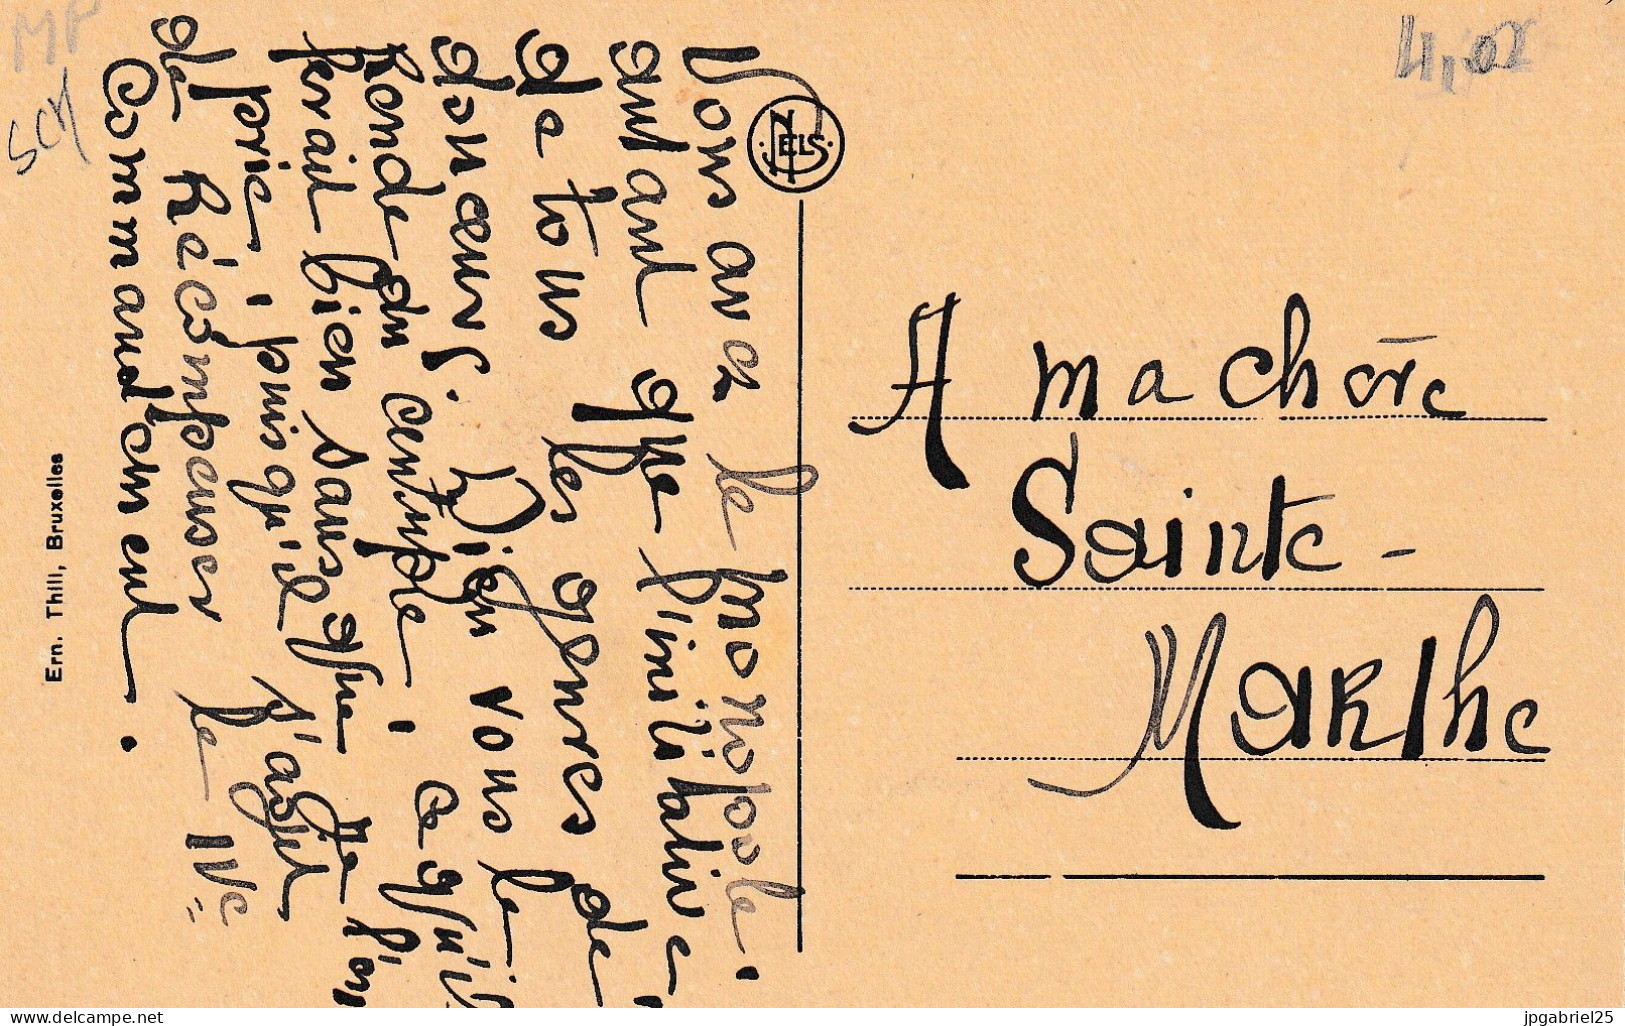 Vous avez le monopole,
autant que l'initiative,
de tous les genres de
douceurs. Dieu vous le
rende du centuple, ce qu'il
ferait bien sans que je l'en
prie, puisqu'il s'agit
de Récompenser le IVe
Commandement.
A ma chère
Sainte-
Marthe
NELS
Ern. Thill, Bruxelles
SCM
MP
www.delcampe.net
jpgabriel25